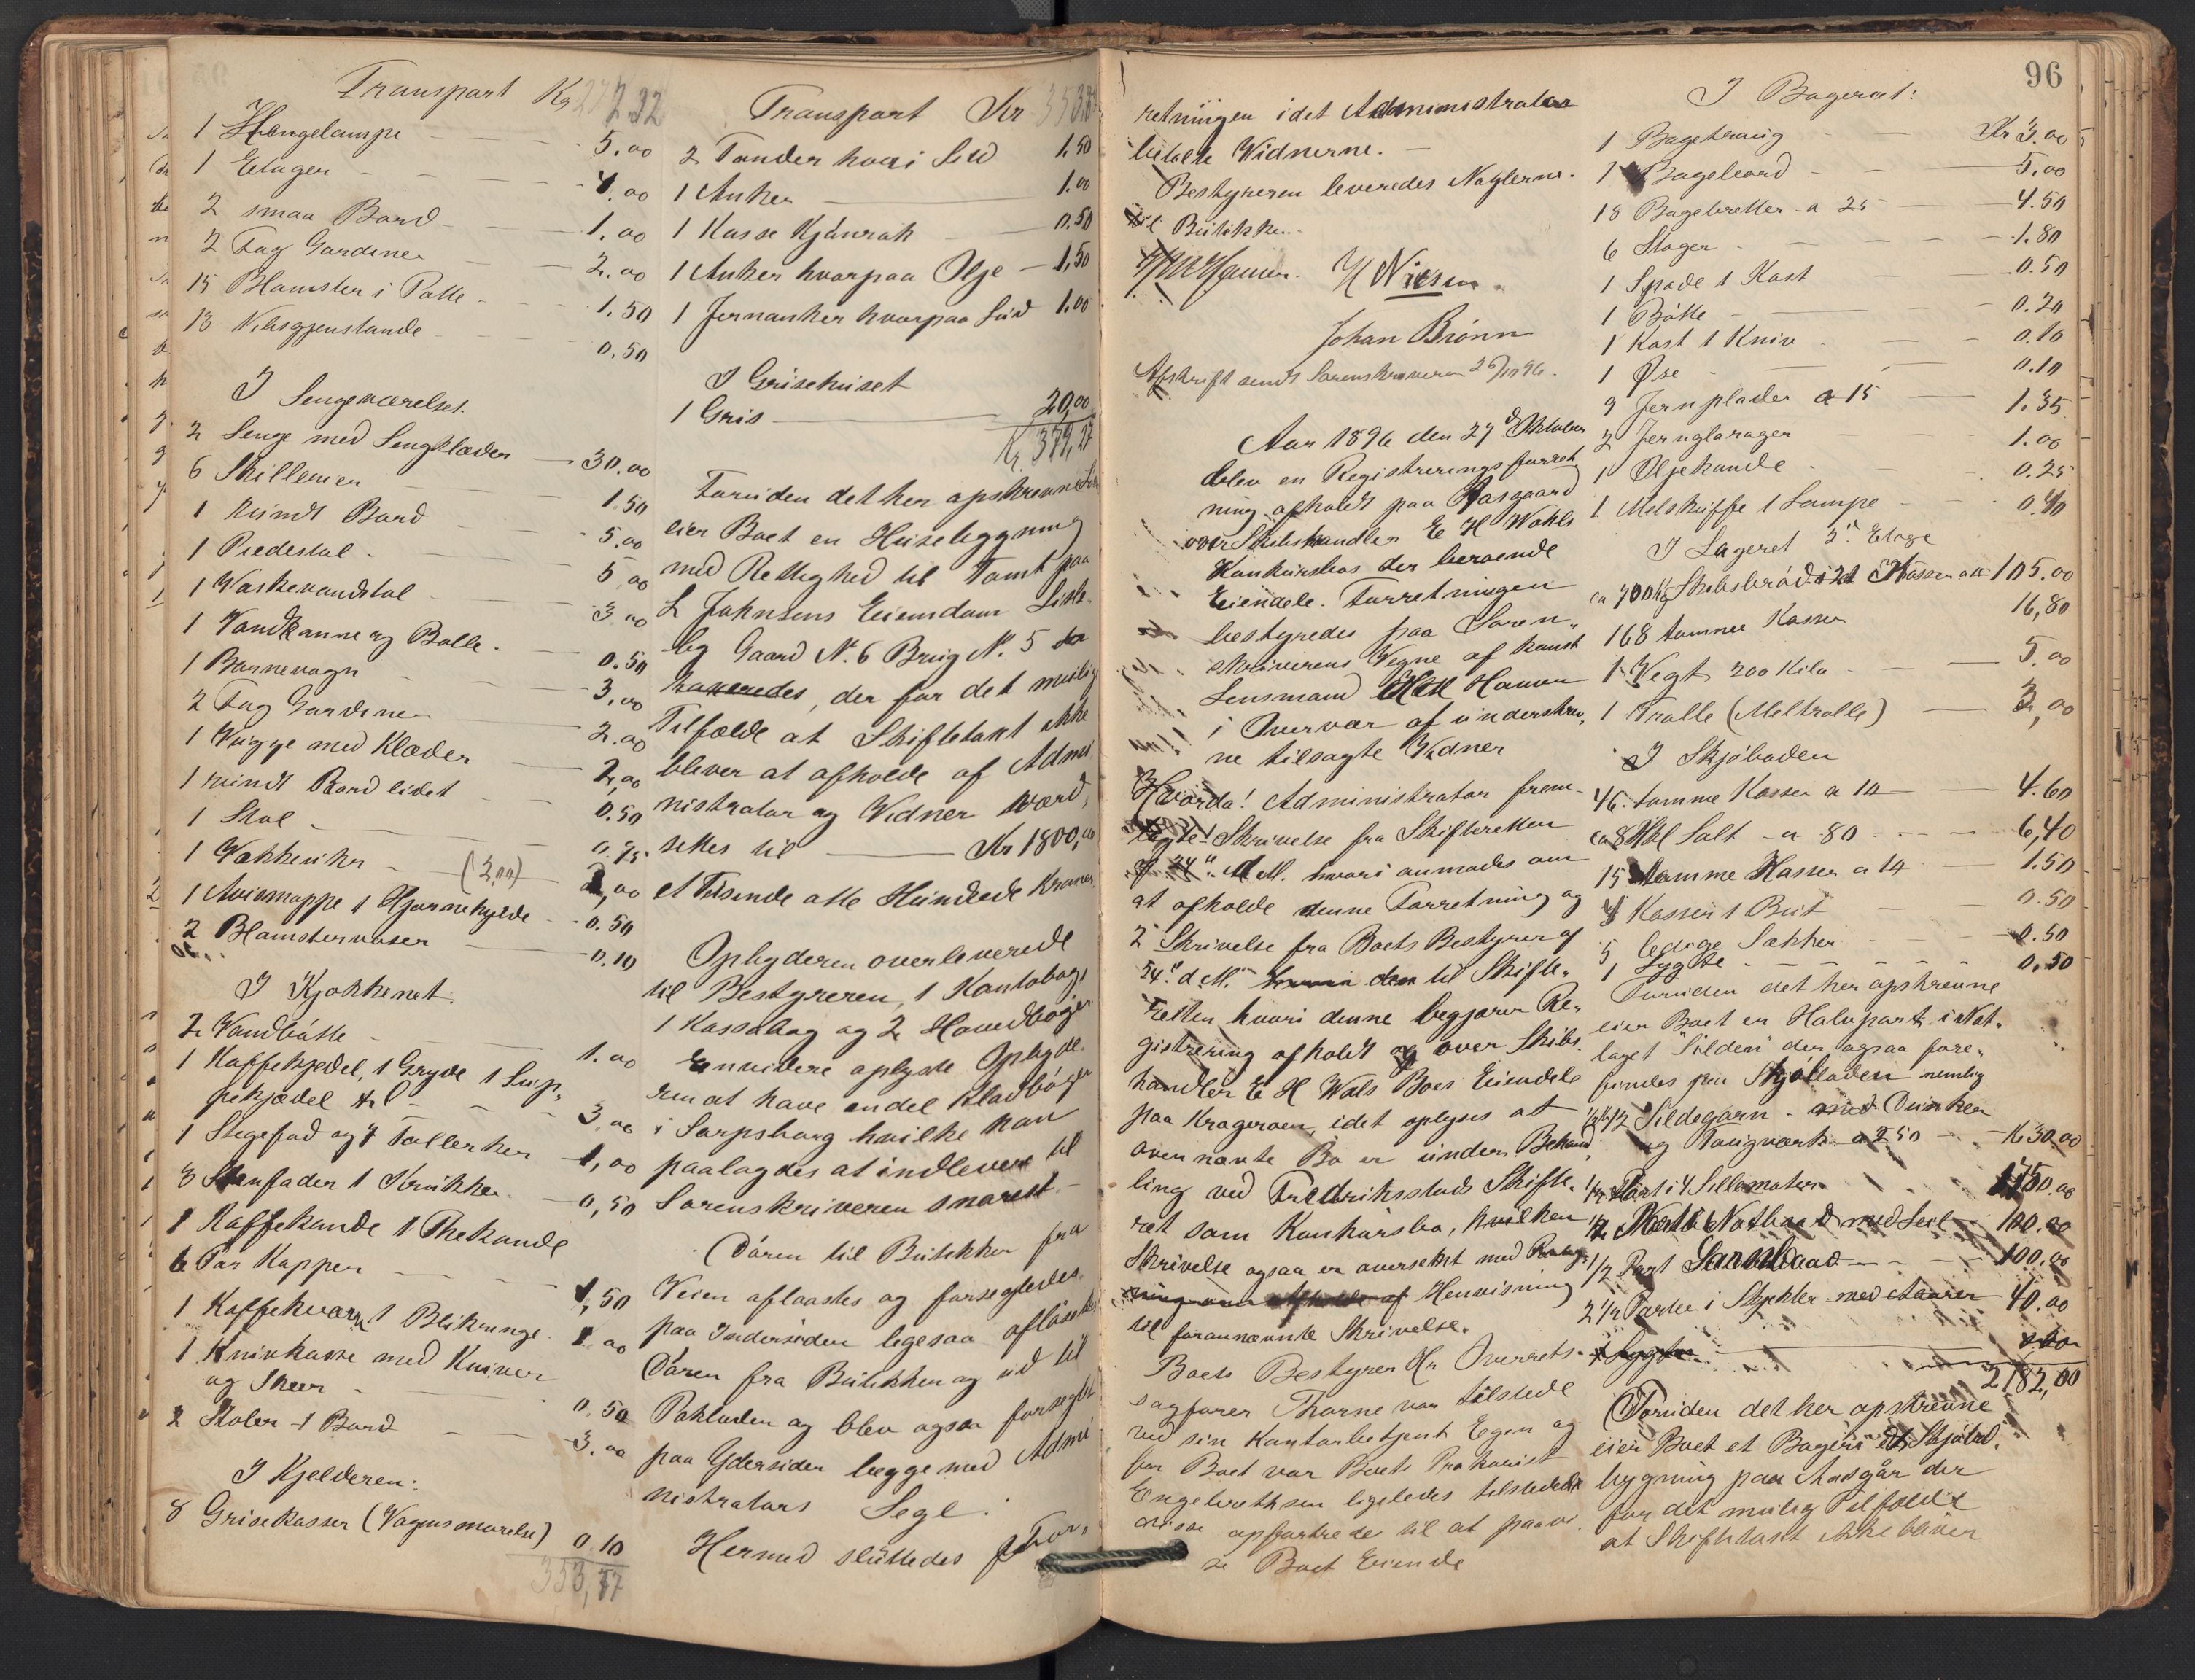 Transport Kr 272.32
1 Hængelampe 5.00
1 Etager 4.00
2 smaa Bord 1.00
2 Fag Gardiner 2.00
15 Blomster i Potte 1.50
13 Vibsgjenstande 0.50
I Sengeværelset.
2 Senge med Sengklæder 30.00
6 Skillerier 1.50
1 rundt Bord 5.00
1 Piedestal 5.00
1 Waskevandstol 3.00
1 Vandkanne og Bolle 0.50
1 Barnevogn 3.00
2 Fag Gardiner 2.00
1 Vugge med Klæder 2.00
1 rundt Bord lidet 0.50
1 Stol 0.75
1 Vækkeuhr (3,00) 2,00
1 Avismappe 1 Hjørnehylde 0.50
2 Blomstervaser 0.10
I Kjøkkenet:
2 Vandbøtte 1.00
1 Kaffekjedel, 1 Gryde 1 Sup-
pekjedel 3.00
1 Stegefad og 7 Tallerker 1,00
3 Stenfader 1 Krukke 0,50
1 Kaffekande 1 Thekande
6 Par Kopper 1,50
1 Kaffekværn 1 Blikspunge 1.00
1 Knivkasse med Kniver
og Skeer 0.50
2 Stoler 1 Bord 3.00
I Kjelderen:
8 Grisekasser (Vognsmørelse) 0.10
353,77
Transport Kr 353.77
2 Tønder hvori Sild 1.50
1 Anker 1.00
1 Kasse Kjønrøk 0.50
1 Anker hvorpaa Olje 1,50
1 Jernanker hvorpaa 1.00
I Grisehuset
1 Gris 20,00
Kr. 379,27
Foruden det her opskrevne
eier Boet en Husebygning
med Rettighed til Tomt paa
L Johnsens Eiendom Lisle-
by Gaard N. 6 Brug N. 5
taxeredes, der for det mulig
Tilfælde at Skiftetaxt ikke
bliver at afholde af Admi
nistrator og Vidner værd,
settes til Kr 1800,00
et Tusinde otte Hundrede Kroner
Opbyderen overleverede
til Bestyreren, 1 Kontobog,
1 Kassabog og 2 Hovedbøger
Envidere oplyste Opbyde-
ren at have endel Kladbøger
i Sarpsborg hvilke han
paalagdes at indlevere til
Sorenskriveren snarest.
Døren til Butikken fra
Veien aflaastes og forsegledes
paa Indersiden ligesaa aflaastes
Døren fra Butikken og ud til
Pakboden og blev ogsaa forseglet
paa Ydersiden begge med Admi
nistrators Segl.
Hermed sluttedes For-
96
retningen idet Administrator
betalte Vidnerne.
Bestyreren leveredes Nøglerne
til Butikken.
H Nilsen
Johan Brønn
Afskrift sendt Sorenskriveren 26/10 96.
Aar 1896 den 27d Oktober
blev en Registreringsforret
ning afholdt paa Aasgaard
over Skibshandler E H Wahls
Konkursbos der beroende
Eiendele. Forretningen
bestyredes paa Soren-
skriverens Vegne af konst
Lensmand Hansen
i Overvær af underskrev-
ne tilsagte Vidner
Hvorda! Administrator frem-
lagte! Skrivelse fra Skifteretten
af 24de d.M. hvori anmodes om
at afholde denne Forretning og
2 Skrivelse fra Boets Bestyrer af
24de d.M. til Skifte-
retten hvori denne begjærer Re-
gistrering afholdt over Skibs-
handler E H Wals Boes Eiendele
paa Kragerøen, idet oplyses at
ovennævnte Bo er under Behand-
ling ved Fredriksstads Skifte-
ret som Konkursbo, hvilken
Skrivelse ogsaa er oversendt med
Henvisning
til forannævnte Skrivelse.
Boets Bestyrer Hr Overrets-
sagfører Thorne var tilstede
ved sin Kontorbetjent Egen og
for Boet var Boets Prokurist
Engebrethsen ligeledes tilstede
disse opfordrede til at paavi-
se Boet Eiende
I Bageriet:
1 Bagetraug Kr 3.00
1 Bagebord 5.00
18 Bagebretter a 25 4.50
6 Stager 1.80
1 Spade 1 Kost 0.50
1 Bøtte 0.20
1 Kost 1 Kniv 0.10
1 Øse 0.10
9 Jernplader a 15 1.35
2 Jernglarager 1.00
1 Oljekande 0.25
1 Melskuffe 1 Lampe 0.40
I Lageret 3. Etage
ca 700 Kg Skibsbrød i 21 Kasser 105.00
168 tomme Kasser 16,80
1 Vegt 200 Kilo 5.00
1 Tralle (Meltralle) 3,00
I Skjøboden
46 tomme Kasser a 10 4.60
ca 8 Hkl Salt a 80 6,40
15 tomme Kasser a 10 1.50
4 Kasser 1 Butt 0.50
5 ledige Sækker 0.50
1 Lygte 0.50
Foruden det her opskrevne
eier Boet en Halvpart i Not-
laget "Silden" der ogsaa fore-
findes paa Skjøboden nemlig
12 Sildegarn med Dunker
og Tougværk a 2 50 Kr 30.00
1/2 Part i 4 Sillenoter 1750.00
1/2 Part i Notbaad med Seil 100.00
1/2 Part 100,00
2 1/2 Parter i Skjekter med Aaarer 40.00
2182,00
Foruden det her opskrevne
eier Boet et Bageri og Skjøbod-
bygning paa Aasgår der
for det mulig Tilfælde
at Skiftetaxt ikke bliver